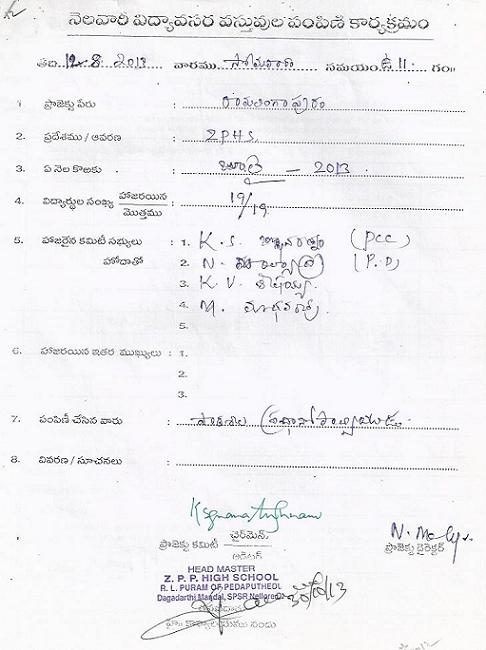 నెలవారి విద్యావసర వస్తువుల పంపిణి కార్యక్రమం
తేది. 12.8.2013 వారము సోమవారం సమయం ఉ 11. గం॥
1. ప్రాజెక్టు పేరు : రామలింగాపురం
2. ప్రదేశము / ఆవరణ : Z.P.H.S.
3. ఏ నెల కొఱకు : జూలై - 2013
4. విద్యార్థుల సంఖ్య హాజరయిన / మొత్తము : 19/19
5. హాజరైన కమిటీ సభ్యులు : 1. K.S. జ్ఞానరత్నం (PCC)
హోదాతో 2. N. (P.D)
3. K.V. శేషయ్య
4. M. మాధవరావు
5.
6. హాజరయిన ఇతర ముఖ్యులు : 1.
2.
3.
7. పంపిణీ చేసిన వారు : పాఠశాల ప్రధానోపాధ్యాయుడు.
8. వివరణ / సూచనలు :
ఛైర్మెన్,
ప్రాజెక్టు కమిటీ
ప్రాజెక్టు డైరెక్టర్
HEAD MASTER
Z. P. P. HIGH SCHOOL
R. L. PURAM OF PEDAPUTHEDU
Dagadarthi Mandal, SPSR Nellore